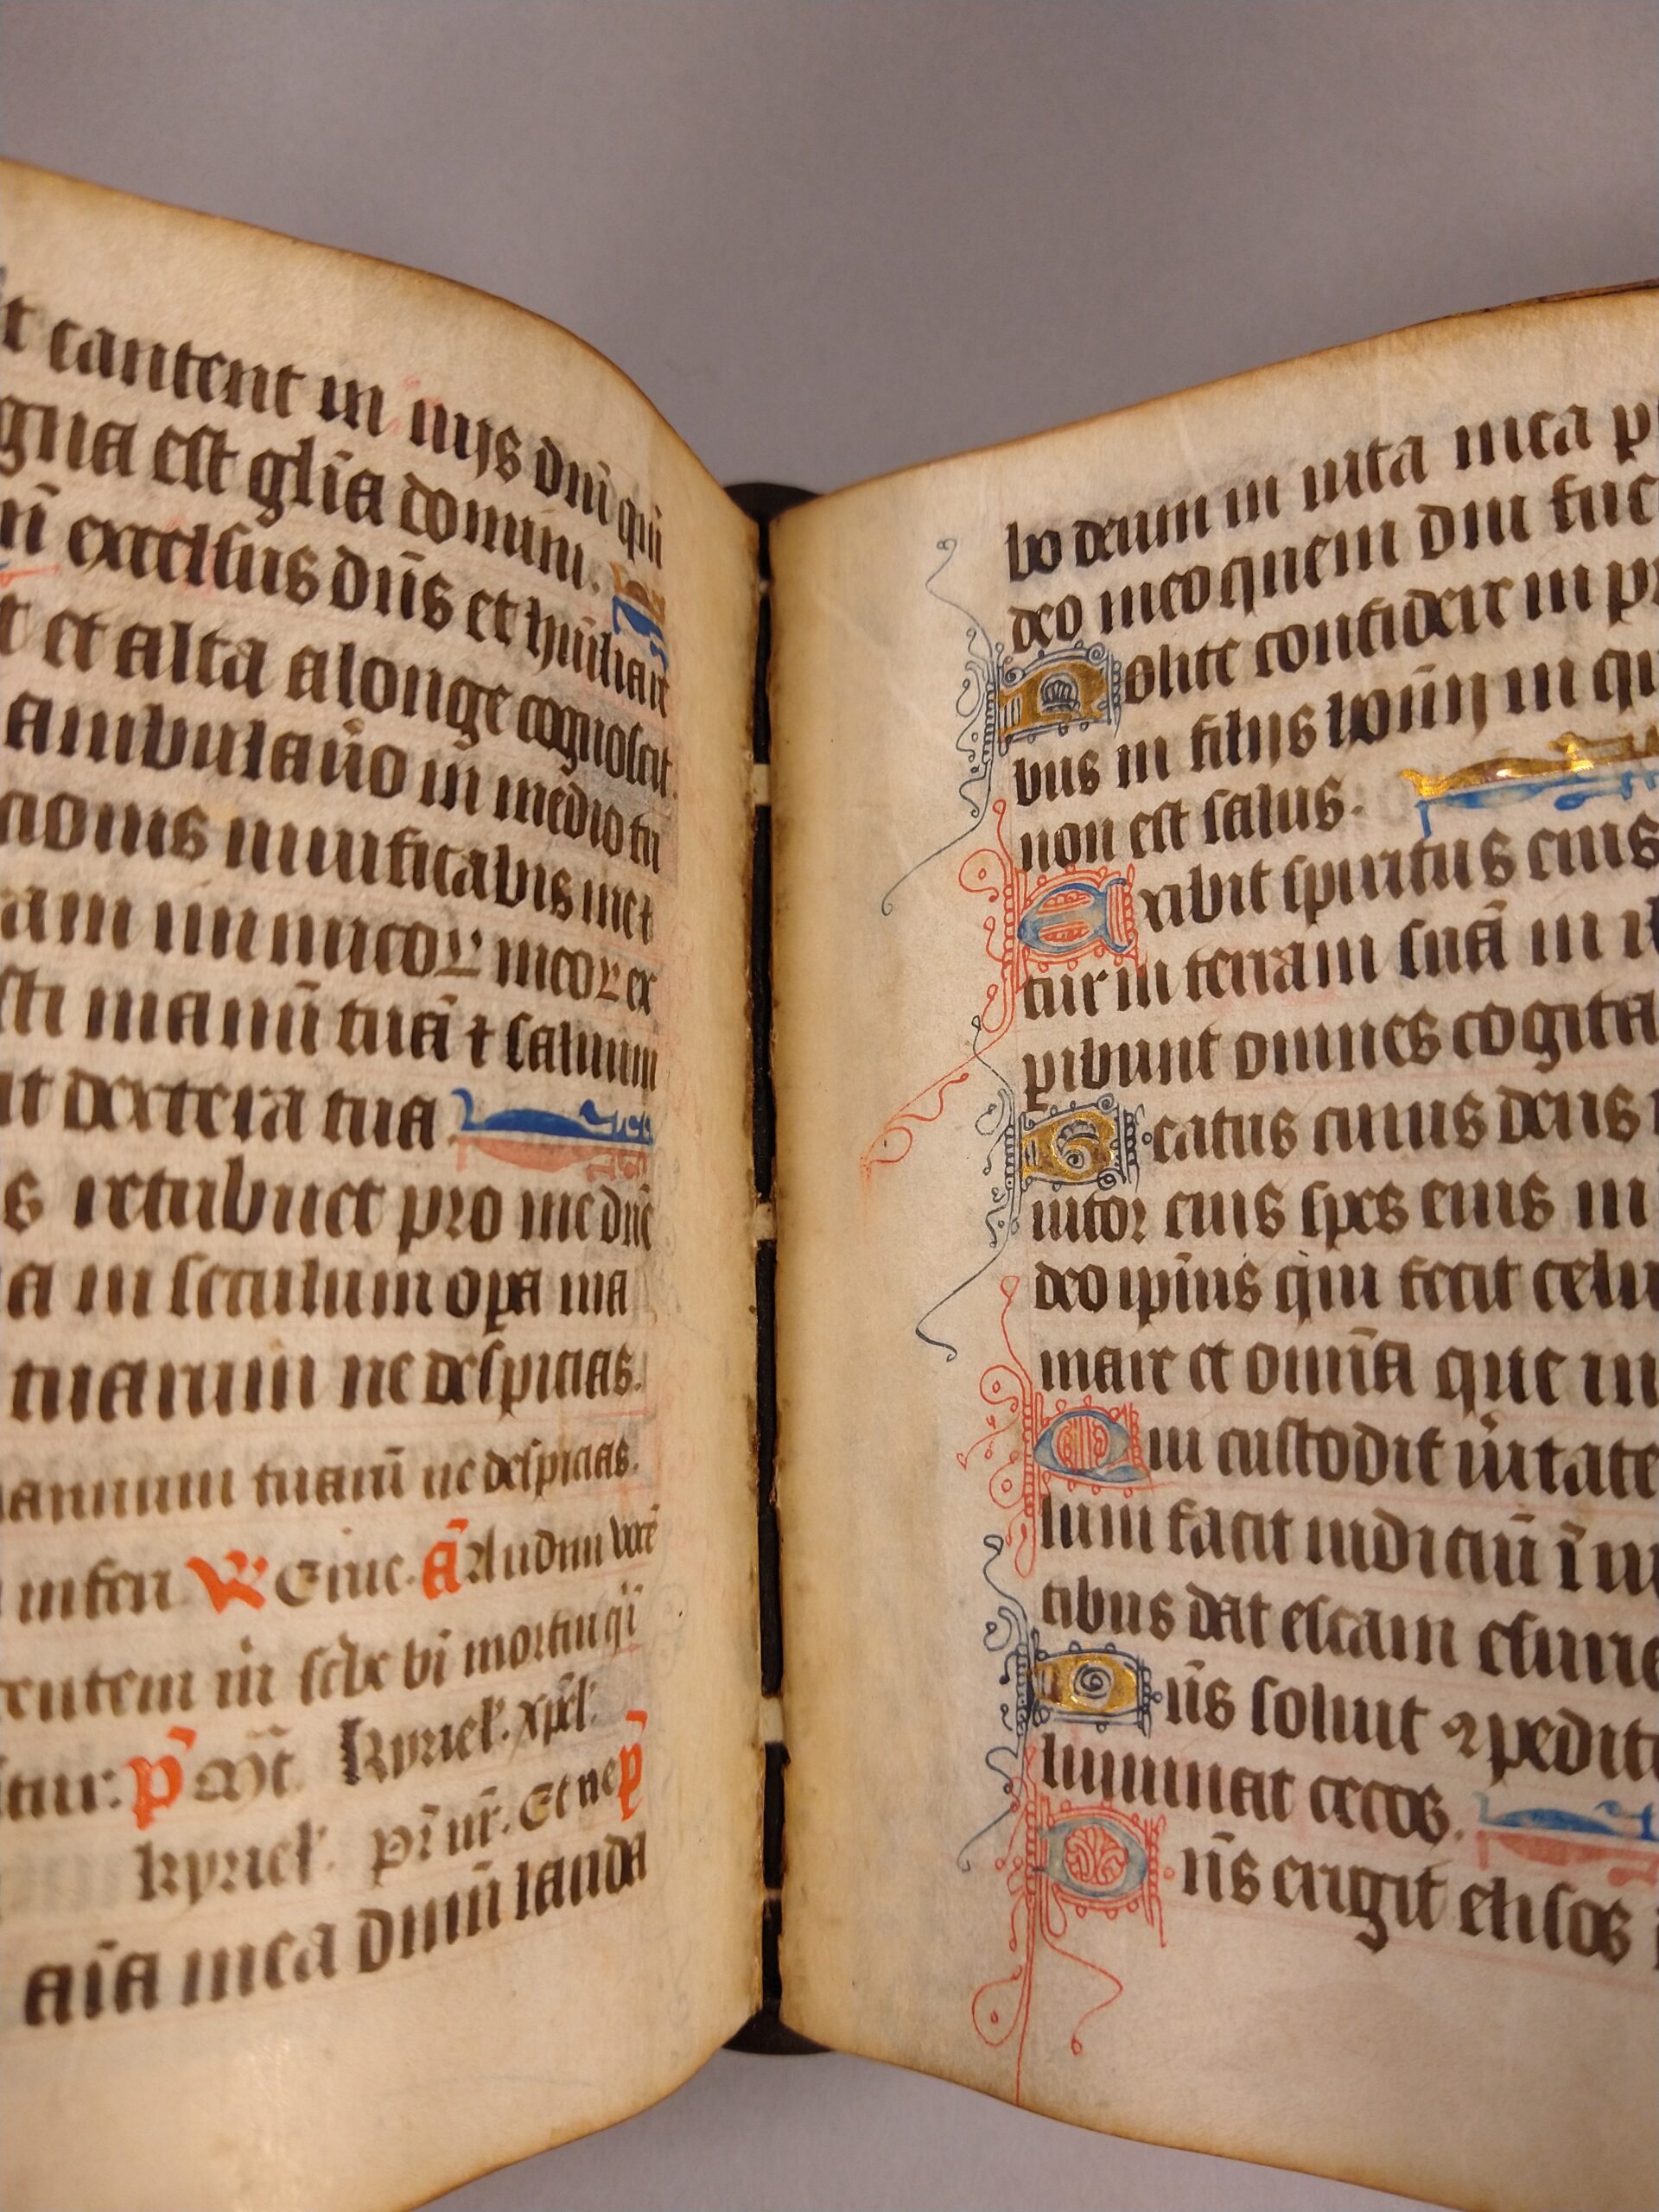 t cantent in uijs dnī qm̄
gna est glīa domini.
nī excelsus dn̄s et hūiliait
t et alta alonge cognoscit.
ambulauō in medio tri
acionis uiuificabis me ⁊
ram inimicoꝝ meoꝝ ex
sti manū tuā ⁊ saluum
it dextera tua.
s retribuet pro me dn̄e
a in seculum oꝑa ma
tuarum ne despicias.
anuum tuarū ne despicias.
inferi ℟ Eruc. A Audiui vocē
centem in scdx bi mortui qi
ntur: p̄ M̄t. Kyriel. xp̄el.
kyriel. pr̄ nr̄. Et ne p̄
aīa mea dnm̄ lauda
bo deum in uita mea p
deo meo quem diu fue
Nolite confidere in pr
bus in filijs hoīm in qui
non est salus.
Exibit spiritus eius
tur in terram suā in il
pibunt omnes cogita
Beatus cuius deus i
iutor eius spes eius in
deo ipīus qui fecit celu
mare et omīa que in
Qui custodit uitate
lum facit iudiciū ī iu
tibus dat escam esurie
Dn̄s soluit ꝯpedit
luminat cecos.
Dn̄s erigit elisos